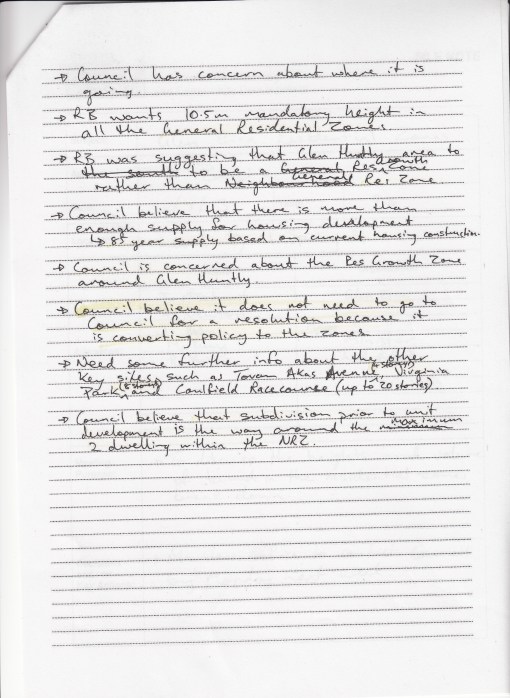 → Council has concern about where it is
going.
→ RB wants 10.5m mandatory height in
all the General Residential Zones.
→ RB was suggesting that Glen Huntly area to
the south to be a General Res Growth Zone
rather than Neighbourhood General Res Zone.
→ Council believe that there is more than
enough supply for housing development
↳ 85 year supply based on current housing construction.
→ Council is concerned about the Res Growth Zone
around Glen Huntly.
→ Council believe it does not need to go to
Council for a resolution because it
is converting policy to the zones.
→ Need some further info about the other
key sites such as Tovan Akas Avenue, Virginia
Park and Caulfield Racecourse (up to 20 stories).
→ Council believe that subdivision prior to unit
development is the way around the minimum maximum
2 dwelling within the NRZ.